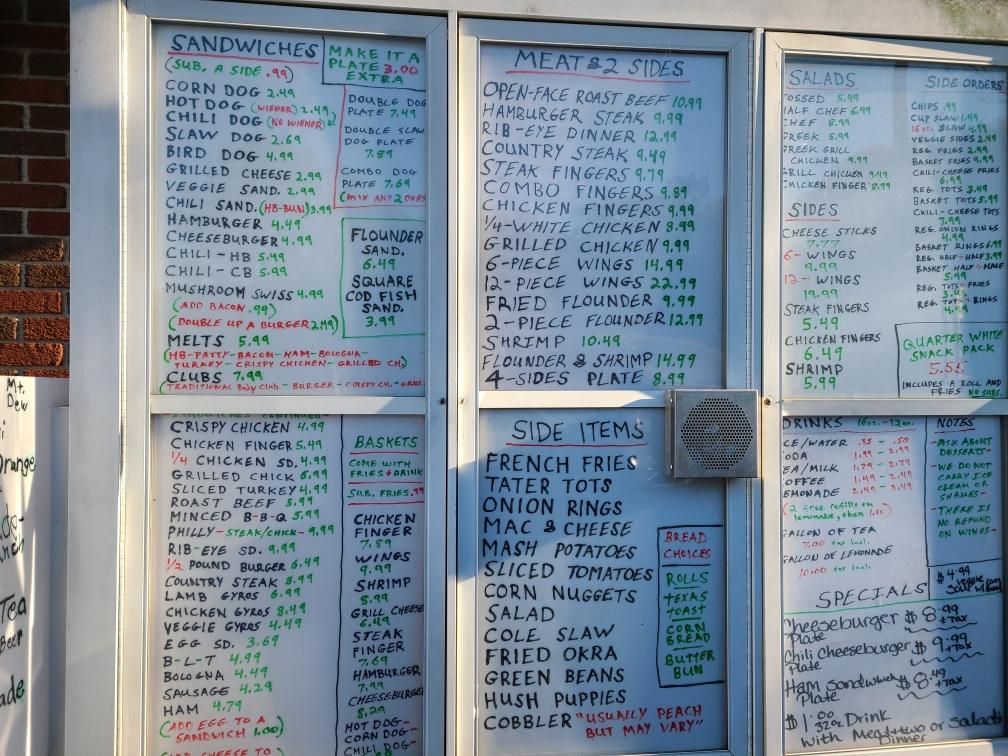 SANDWICHES
(SUB. A SIDE .99)
MAKE IT A
PLATE 3.00
EXTRA
CORN DOG 2.49
HOT DOG (WIENER) 2.49
CHILI DOG (NO WIENER)
SLAW DOG 2.69
BIRD DOG 4.99
GRILLED CHEESE 2.99
VEGGIE SAND. 2.99
CHILI SAND. (HB-BUN) 3.99
HAMBURGER 4.49
CHEESEBURGER 4.99
CHILI-HB 5.49
CHILI-CB 5.99
MUSHROOM SWISS 4.99
(ADD BACON .99)
(DOUBLE UP A BURGER 2.49)
MELTS 5.99
(HB-PATTY-BACON-HAM-BOLOGNA-
TURKEY-CRISPY CHICKEN-GRILLED CH.)
CLUBS 7.99
DOUBLE DOG
PLATE 7.49
DOUBLE SLAW
DOG PLATE
7.89
COMBO DOG
PLATE 7.69
(MIX ANY 2 DOGS
FLOUNDER
SAND.
6.49
SQUARE
COD FISH
SAND.
3.99
CRISPY CHICKEN 4.99
CHICKEN FINGER 5.49
1/4 CHICKEN SD. 4.99
GRILLED CHICK 6.99
SLICED TURKEY 4.99
ROAST BEEF 5.99
MINCED B-B-Q 5.99
PHILLY-STEAK/CHICK- 9.99
RIB-EYE SD. 9.99
1/2 POUND BURGER 6.49
COUNTRY STEAK 5.99
LAMB GYROS 6.99
CHICKEN GYROS 8.49
VEGGIE GYROS 4.49
EGG SD. 3.69
B-L-T 4.99
BOLOGNA 4.49
SAUSAGE 4.29
HAM 4.79
(ADD EGG TO A
SANDWICH 1.00)
BASKETS
COME WITH
FRIES & DRINK
SUB. FRIES .99
CHICKEN
FINGER
7.89
WINGS
9.99
SHRIMP
8.99
GRILL CHEESE
6.49
STEAK
FINGER
7.69
HAMBURGER
7.99
CHEESEBURGER
8.29
HOT DOG-
CORN DOG-
CHILI DOG-
MEAT & 2 SIDES
OPEN-FACE ROAST BEEF 10.99
HAMBURGER STEAK 9.99
RIB-EYE DINNER 12.99
COUNTRY STEAK 9.49
STEAK FINGERS 9.79
COMBO FINGERS 9.89
CHICKEN FINGERS 9.99
1/4-WHITE CHICKEN 8.99
GRILLED CHICKEN 9.99
6-PIECE WINGS 14.99
12-PIECE WINGS 22.99
FRIED FLOUNDER 9.99
2-PIECE FLOUNDER 12.99
SHRIMP 10.49
FLOUNDER & SHRIMP 14.99
4-SIDES PLATE 8.99
SIDE ITEMS
FRENCH FRIES
TATER TOTS
ONION RINGS
MAC & CHEESE
MASH POTATOES
SLICED TOMATOES
CORN NUGGETS
SALAD
COLE SLAW
FRIED OKRA
GREEN BEANS
HUSH PUPPIES
COBBLER "USUALLY PEACH
BUT MAY VARY"
BREAD
CHOICES
ROLLS
TEXAS
TOAST
CORN
BREAD
BUTTER
BUN
SALADS
OSSED 5.49
HALF CHEF 6.49
CHEF 8.99
REEK 5.99
REEK GRILL
CHICKEN 9.99
GRILL CHICKEN 9.49
CHICKEN FINGER 8.99
SIDES
CHEESE STICKS
7.77
6-WINGS
9.99
12-WINGS
19.99
STEAK FINGERS
5.49
CHICKEN FINGERS
6.49
SHRIMP
5.99
SIDE ORDERS
CHIPS .99
CUP SLAW 1.49
16oz. SLAW 4.99
VEGGIE SIDES 2.49
REG. FRIES 2.99
BASKET FRIES 4.99
CHILI-CHEESE FRIES
6.99
REG. TOTS 3.49
BASKET TOTS 5.99
CHILI-CHEESE TOTS
7.99
REG. ONION RINGS
4.99
BASKET RINGS 6.99
REG. HALF & HALF 3.99
BASKET HALF & HALF
5.99
REG. TOTS & FRIES
REG. TOTS & RINGS
4.99
QUARTER WHITE
SNACK PACK
5.55
INCLUDES A ROLL AND
FRIES NO SUBS.
DRINKS 16oz.-32oz.
CE/WATER .35 - .50
ODA 1.99 - 2.99
EA/MILK 1.79 - 2.79
OFFEE 1.49 - 2.99
EMONADE 2.49 - 3.49
(2 free refills on
lemonade, then 1.00)
GALLON OF TEA
7.00 tax incl.
GALLON OF LEMONADE
10.00 tax incl.
NOTES
-ASK ABOUT
DESSERTS-
-WE DO NOT
CARRY ICE
CREAM OR
SHAKES-
-THERE IS
NO REFUND
ON WINGS-
$4.99
SPECIALS
Cheeseburger $8.99
Plate +Tax
Chili Cheeseburger $9.99
Plate +Tax
Ham Sandwich $8.49
Plate +Tax
$1.00 32oz Drink
with Meat+two or Salads
Dinner
Mt.
Dew
range
Tea
Beer
ade